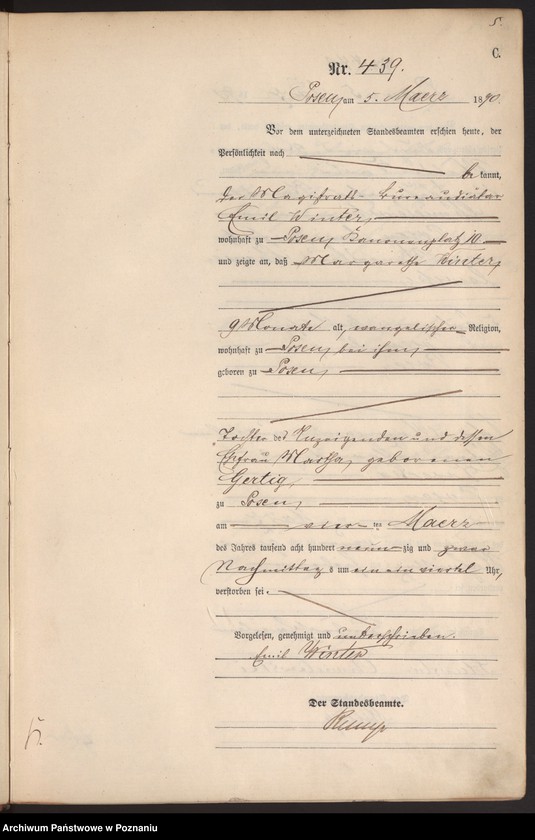 5.
C.
Nr. 439.
Posen, am 5. Maerz 1890.
Vor dem unterzeichneten Standesbeamten erschien heute, der
Persönlichkeit nach
be kannt,
der Magistrats-Bureaudiätar
Emil Winter,
wohnhaft zu Posen, Kanonenplatz 10
und zeigte an, daß Margarethe Winter,
9 Monate alt, evangelischer Religion,
wohnhaft zu Posen, bei ihm,
geboren zu Posen,
Tochter des Anzeigenden und dessen
Ehefrau Martha, geborenen
Gertig,
zu Posen,
am vier ten Maerz
des Jahres tausend acht hundert neun zig und zwar
Nachmittag s um ein ein viertel Uhr,
verstorben sei.
Vorgelesen, genehmigt und unterschrieben.
Emil Winter
Der Standesbeamte.
Archiwum Państwowe w Poznaniu